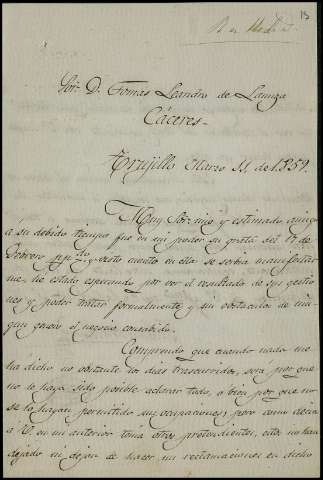 13
Sor. D. Tomas Leandro de Lamza
Cáceres.
Trujillo Marzo 11, de 1859.
Muy Sor. mio y estimado amigo
á su debido tiempo fue en mi poder su grata del 17 de
Febrero ppdo. y visto cuanto en ella se servia manifestar
me, he estado esperando por ver el resultado de sus gestio
nes y poder tratar formalmente y sin obstaculos de nin
gun genero el negocio consabido.
Comprendo que cuando nada me
ha dicho no obstante los dias trascurridos, sera por que
no le haya sido posible aclarar todo, ó bien por que no
se lo hayan permitido sus ocupaciones; pero como decia
á V. en mi anterior tenia otros pretendientes, estos no han
dejado ni dejan de hacer sus reclamaciones en dicho